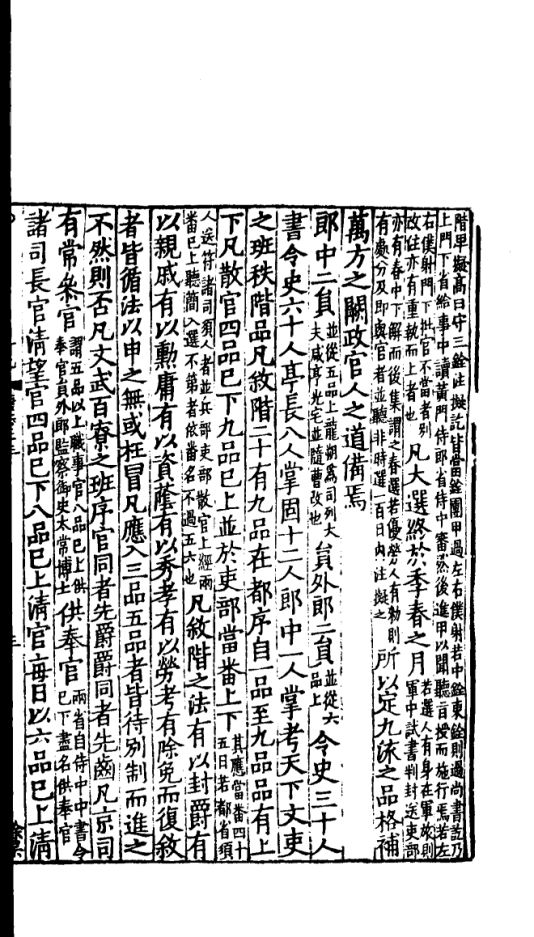 階卑擬高曰守三銓注擬訖皆當銓團甲過左右僕射若中銓東銓則過尚書訖乃
上門下省給事中讀黃門侍郎省侍中審然後進甲以聞聽旨授而施行焉若左
右僕射門下批官不當者別
改注亦有重執而上者也
凡大選終於季春之月
若選人有身在軍旅則
軍中試書判封送吏部
亦有春中下解而後集謂之春選若優勞人有勑則
有處分及即與官者並聽非時選一百日內注擬之
所以定九流之品格補
萬方之闕政官人之道備焉
郎中二員
並從五品上龍朔為司列大
夫咸亨光宅並隨曹改也
員外郎二員
並從六
品上
令史三十人
書令史六十人亭長八人掌固十二人郎中一人掌考天下文吏
之班秩階品凡敘階二十有九品在都序自一品至九品品有上
下凡散官四品已下九品已上並於吏部當番上下
其應當番四十
五日若都省須
人送符諸司須人者並兵部吏部散官上經兩
番已上聽簡入選不第者依番名不過五六也
凡敘階之法有以封爵有
以親戚有以勳庸有以資蔭有以秀孝有以勞考有除免而復敘
者皆循法以申之無或枉冒凡應入三品五品者皆待別制而進之
不然則否凡文武百寮之班序官同者先爵爵同者先齒凡京司
有常參官
謂五品以上職事官八品已上供
奉官員外郎監察御史太常博士
供奉官
兩省自侍中中書令
已下盡名供奉官
諸司長官清望官四品已下八品已上清官每日以六品已上清